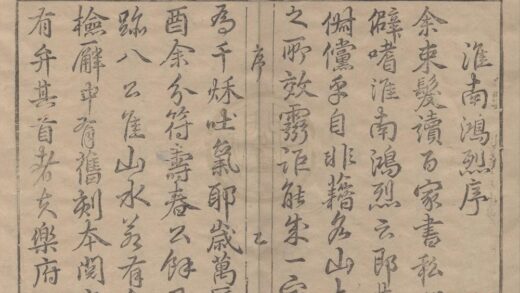 淮南鴻烈序
余束髮讀百家書私
癖嗜淮南鴻烈云即
倜儻乎自非藉名山
之所效靈詎能成一
序
乙
為千秌吐氣耶歲萬
酉余分符壽春公餘
跡八公隹山水若有
檢廨中有舊刻本閱
有弁其首者夫樂府